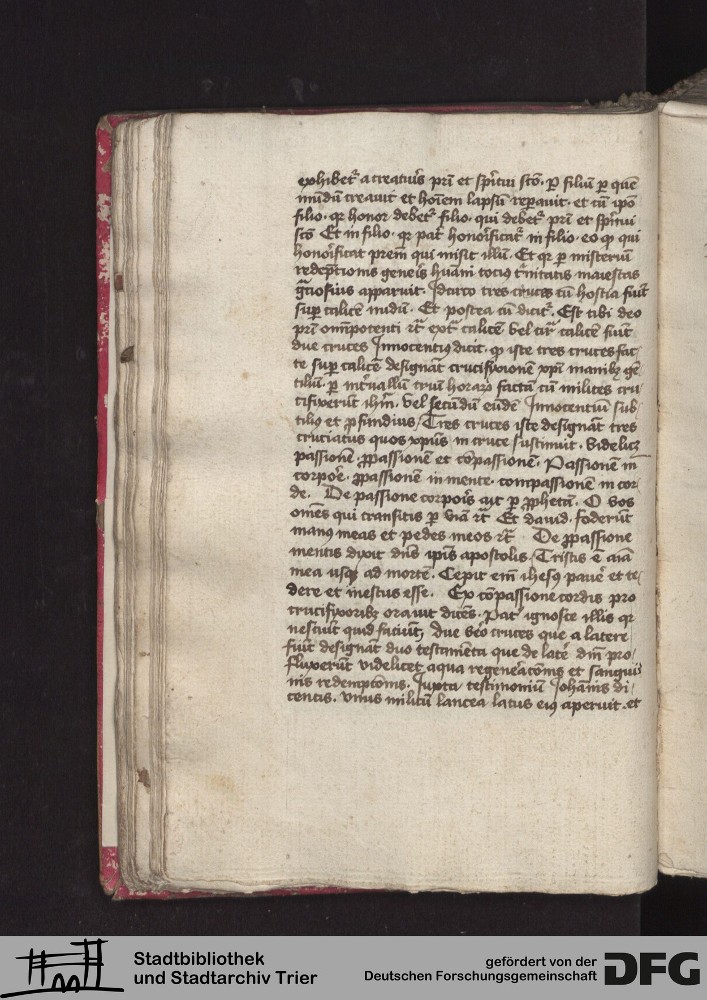 exhibet᷑ a creatur̄s pr̄i et spi᷑tui sc̄o · P filiū p quē
mūdū creauit et hoīem lapsū rep̄auit · et cū ip̄o
filio · qr honor debet᷑ filio · qui debet᷑ pr̄i et spi᷑tui
sc̄o Et in filio · qr pat᷑ honorificat᷑ in filio · eo qꝫ qui
honorificat pr̄em qui misit illū · Et qr p misteriū
redēptionis gener̄is hūani tocius t᷑nitatis maiestas
gr̄ciosius apparuit · Idcirco tres cruces cū hostia fiūt
sup calicē nudū · Et postea cū dicit᷑ · Est tibi deo
pr̄i om̄ipotenti ꝛc̄ ext᷑ calicē vel cir᷑ calicē fiūt
due cruces Innocentiꝰ dicit · qꝫ iste tres cruces fac-
te sup calicē designāt crucifixionē xp̄i manibꝫ gē
tiliū · p int᷑uallū triū horaꝝ factā cū milites cru
cifixerūt ih̄m · vel secūdū eūdē Innocentiū sub
tiliꝰ et ꝓfundius / Tres cruces iste designāt tres
cruciatus quos xp̄us in cruce sustinuit · videlicꝫ
passionē ꝓpassionē et cōpassionē · Passionē in
corpor̄e · ꝓpassionē in mente · compassionē in cor
de · De passione corpor̄is ait p ꝓphetā · O vos
om̄es qui transitis p viā ꝛc̄ Et dauid · foderūt
manꝰ meas et pedes meos ꝛc̄ De ꝓpassione
mentis dixit dn̄s ip̄is apostolis / Tristis ē aīa
mea usqꝫ ad mortē · Cepit em̄ ihesꝰ pauēr et te
dere et mestus esse · Ex cōpassione cordis pro
crucifixoribꝫ orauit dicēs · Pat᷑ ignosce illis qr
nesciūt quid faciūt, due vēro cruces que a latere
fiūt designāt duo testamēta que de later̄e dn̄i pro
fluxerūt videlicet aqua regener̄acōnis et sangui
nis redemptōnis · Iuxta testimoniū Iohānis di
centis · vnus militū lancea latus eiꝰ aperuit · et
Stadtbibliothek
und Stadtarchiv Trier
gefördert von der
Deutschen Forschungsgemeinschaft
DFG